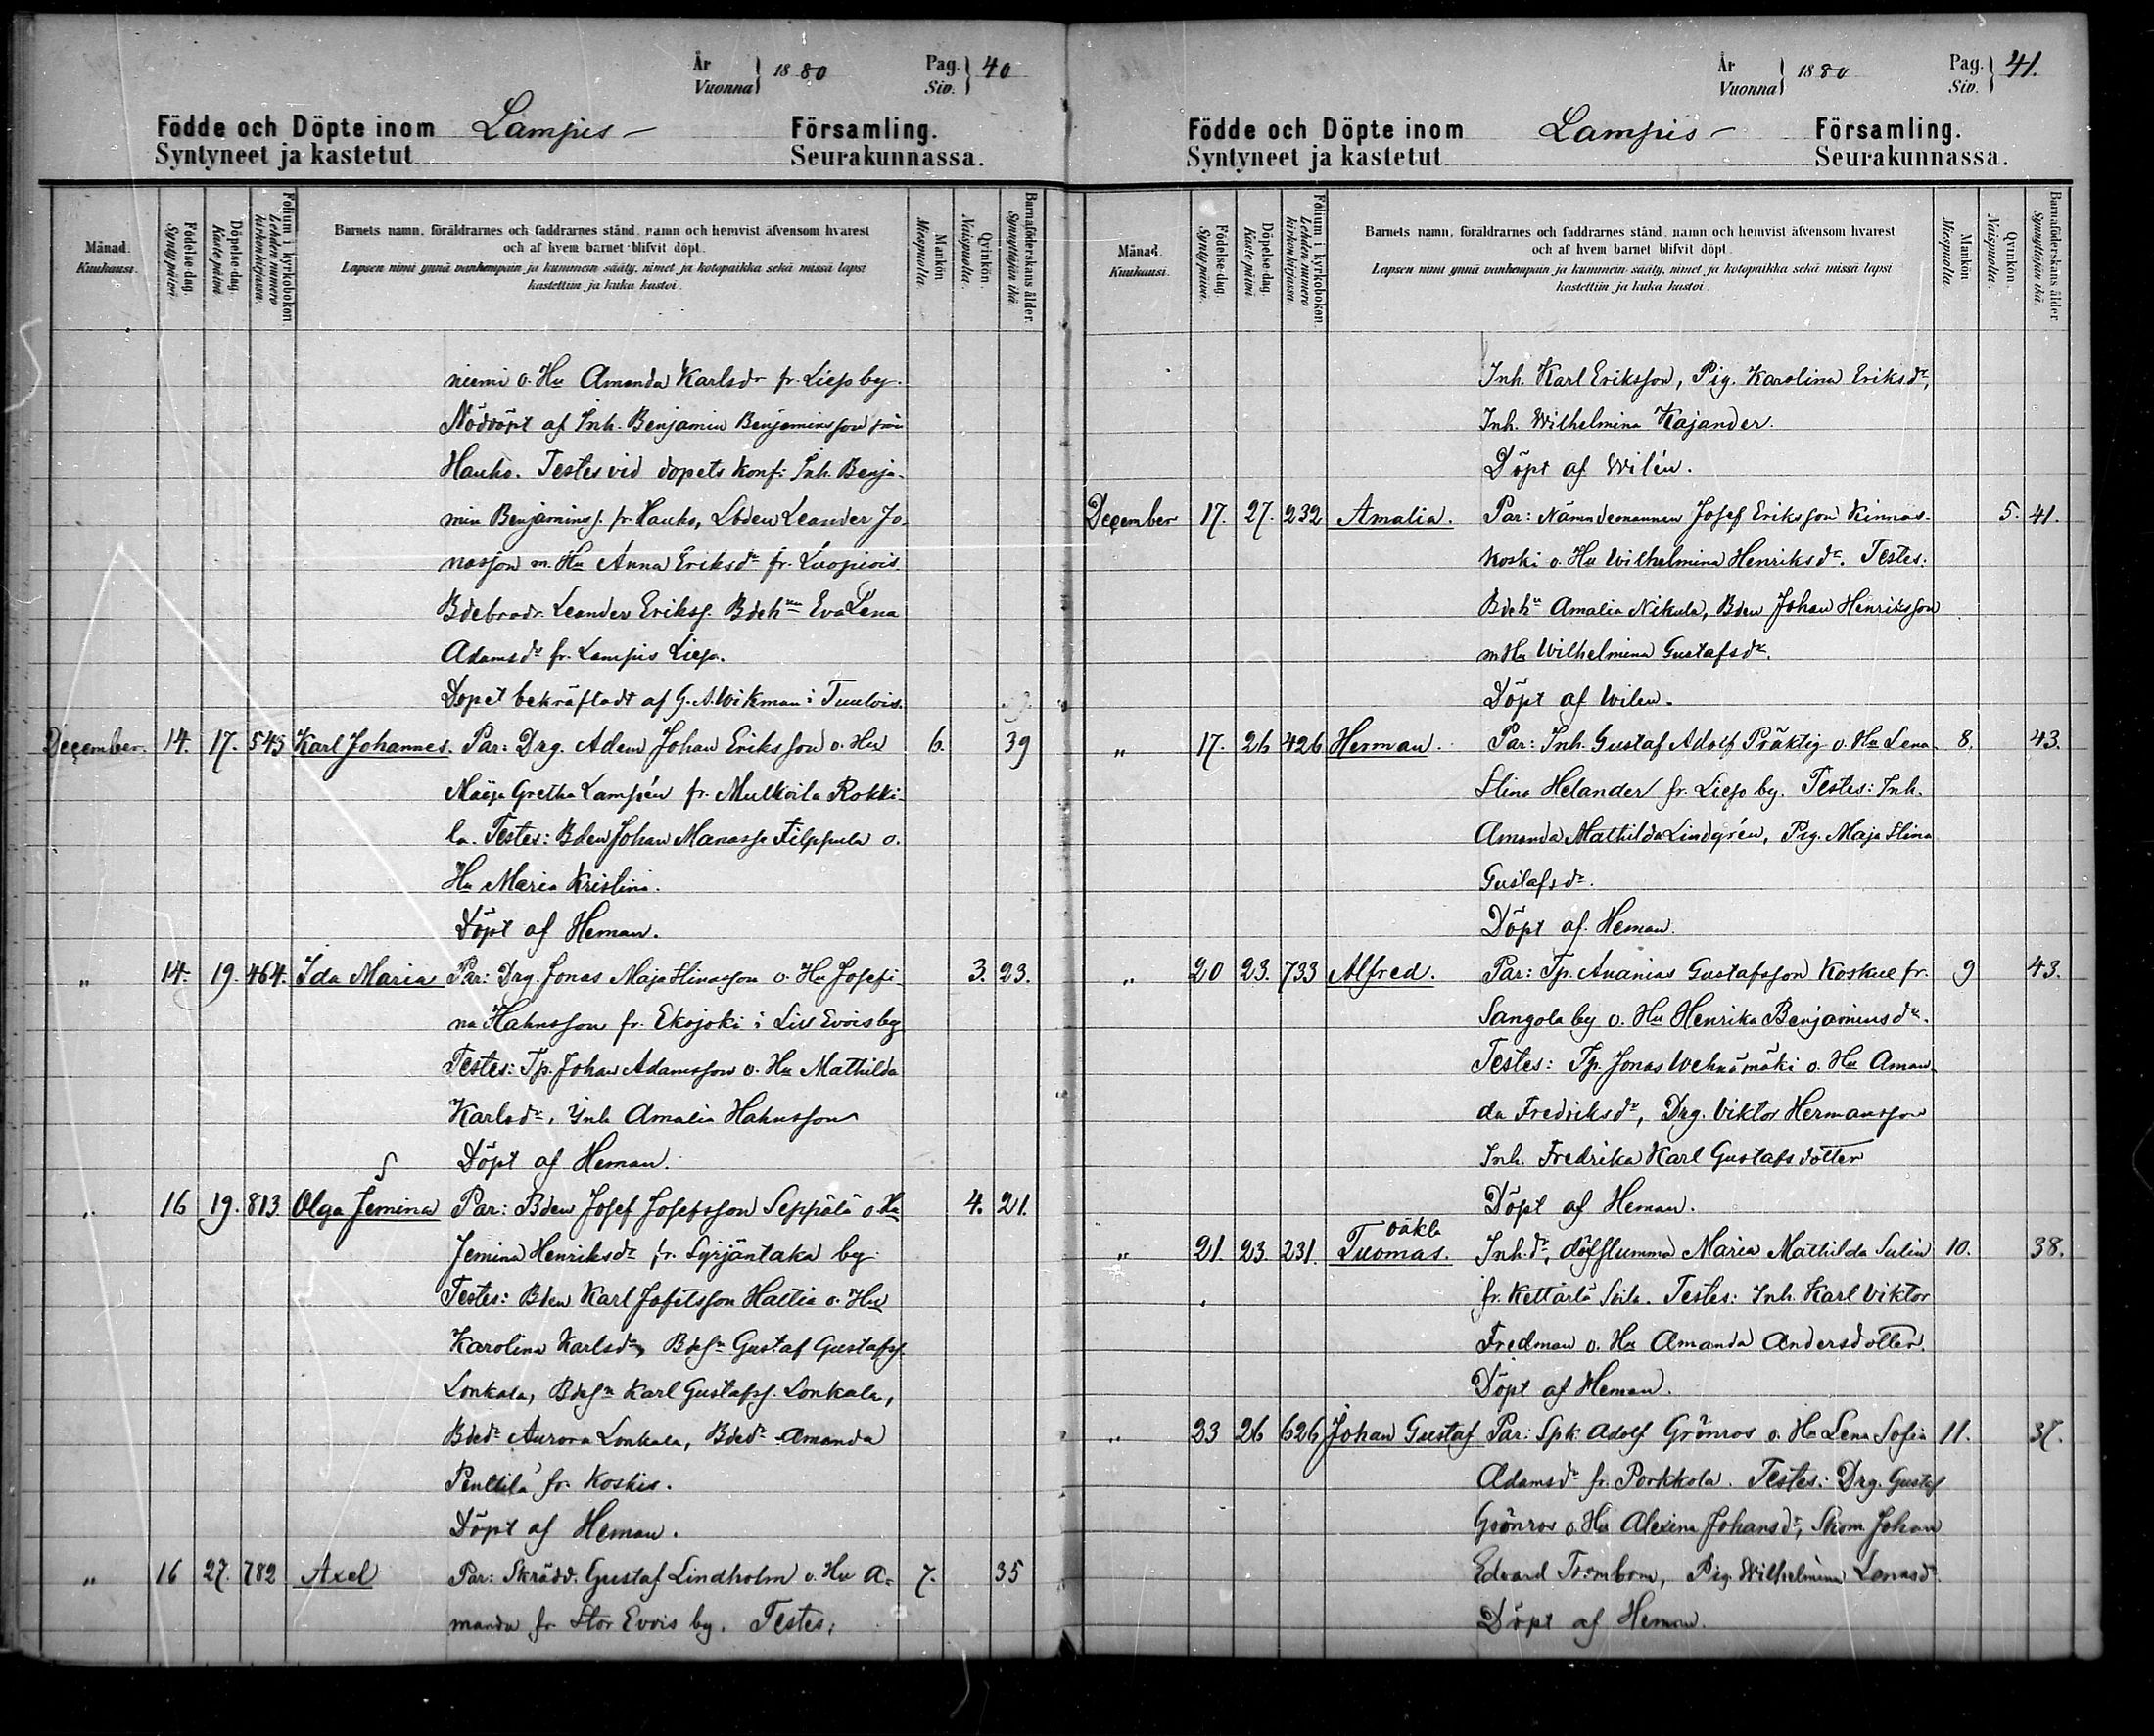 År
Vuonna } 1880 Pag.
Siv. } 40
Födde och Döpte inom Lampis Församling.
Syntyneet ja kastetut Seurakunnassa.
Månad.
Kuukausi.
Födelse-dag.
Synty päivä.
Döpelse-dag.
Kaste päivä
Folium i kyrkobokon.
Lehden numero
kirkonkirjassa.
Barnets namn, föräldrarnes och faddrarnes stånd, namn och hemvist äfvensom hvarest
och af hvem barnet blifvit döpt.
Lapsen nimi ynnä vanhempain ja kummein sääty, nimet ja kotopaikka sekä missä lapsi
kastettiin ja kuka kastoi.
Mankön.
Miespuolta.
Qvinkön.
Naispuolta.
Barnaföderskans ålder.
Synnyttäjän ikä.
niemi o. Hu Amanda Karlsdr fr. Lieso by.
Nöddöpt af Inh. Benjamin Benjaminsson från
Hauho. Testes vid dopets konf: Inh. Benja-
min Benjamins. fr. Hauho, Leander Jo-
nasson m. Hu Anna Eriksdr fr. Luopiois.
Bdebrodr. Leander Eriks. Bdehun Eva Lena
Adamsdr fr. Lampis Lieso.
Dopet bekräftadt af G. A. Wikman i Tuulois.
December. 14. 17. 549 Karl Johannes. Par: Drg. Adam Johan Eriksson o. Hu 6. 39
Maija Gretha Lampén fr. Mulkoila Rokki-
la. Testes: Bden Johan Manasse Filppula o.
Hu Maria Kristina.
Döpt af Heman.
„ 14. 19. 464. Ida Maria Par: Drg. Jonas Maja Stinasson o. Hu Josefi- 3. 23.
na Hahnsson fr. Ekojoki i Lill Evois by
Testes: Tp. Johan Adamsson o. Hu Mathilda
Karlsdr, Inh Amalia Hahnsson
Döpt af Heman.
„ 16 19. 813 Olga Jemina Par: Bden Josef Josefsson Seppälä o. Hu 4. 21.
Jemina Henriksdr fr. Syrjäntaka by.
Testes: Bden Karl Josefsson Hattia o. Hu
Karolina Karlsdr, Bdesn Gustaf Gustafss.
Lonkala, Bdesn Karl Gustafss. Lonkala,
Bdedr Aurora Lonkala, Bdedr Amanda
Penttilä fr. Koskis.
Döpt af Heman.
„ 16 27. 782 Axel Par: Skrädd. Gustaf Lindholm o. Hu A- 7. 35
manda fr. Stor Evois by. Testes:
År
Vuonna } 1880 Pag.
Siv. } 41.
Födde och Döpte inom Lampis Församling.
Syntyneet ja kastetut Seurakunnassa.
Månad.
Kuukausi.
Födelse-dag.
Synty päivä.
Döpelse-dag.
Kaste päivä
Folium i kyrkobokon.
Lehden numero
kirkonkirjassa.
Barnets namn, föräldrarnes och faddrarnes stånd, namn och hemvist äfvensom hvarest
och af hvem barnet blifvit döpt.
Lapsen nimi ynnä vanhempain ja kummein sääty, nimet ja kotopaikka sekä missä lapsi
kastettiin ja kuka kastoi.
Mankön
Miespuolta.
Qvinkön.
Naispuolta.
Barnaföderskans ålder
Synnyttäjän ikä.
Inh. Karl Eriksson, Pig. Karolina Eriksdr,
Inh. Wilhelmina Kajander.
Döpt af Wilén.
December 17. 27. 232 Amalia. Par: Nämndemannen Josef Eriksson Kinnas- 5. 41.
koski o. Hu Wilhelmina Henriksdr. Testes:
Bdehu Amalia Nikula, Bden Johan Henriksson
m Hu Wilhelmina Gustafsdr.
Döpt af Wilen.
„ 17. 26 426 Herman. Par: Inh. Gustaf Adolf Präktig o. Hu Lena 8. 43.
Stina Helander fr. Lieso by. Testes: Inh.
Amanda Mathilda Lindgrén, Pig. Maja Stina
Gustafsdr.
Döpt af Heman.
„ 20 23. 733 Alfred. Par: Tp. Ananias Gustafsson Koskue fr. 9 43.
Sangola by o. Hu Henrika Benjaminsdr.
Testes: Tp. Jonas Wehnämäki o. Hu Aman-
da Fredriksdr, Drg. Viktor Hermansson
Inh. Fredrika Karl Gustafsdotter
Döpt af Heman.
oäkta
„ 21. 23. 231. Tuomas. Inh. dr, döfstumma Maria Mathilda Sulin 10. 38.
fr. Kettärlä. Testes: Inh. Karl Viktor
Fredman o. Hu Amanda Andersdotter.
Döpt af Heman.
„ 23 26 626 Johan Gustaf Par: Spk. Adolf Grönros o. Hu Lena Sofia 11. 37.
Adamsdr fr. Porkkola. Testes: Drg. Gustaf
Grönros o. Hu Alexina Johansdr, Skom. Johan
Edvard, Pig. Wilhelmina
Döpt af Heman.